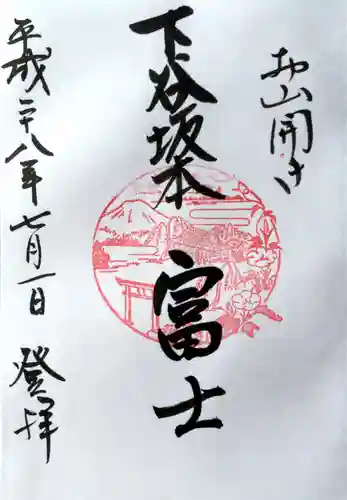 お山開き
下谷坂本富士
平成二十八年七月一日 登拝